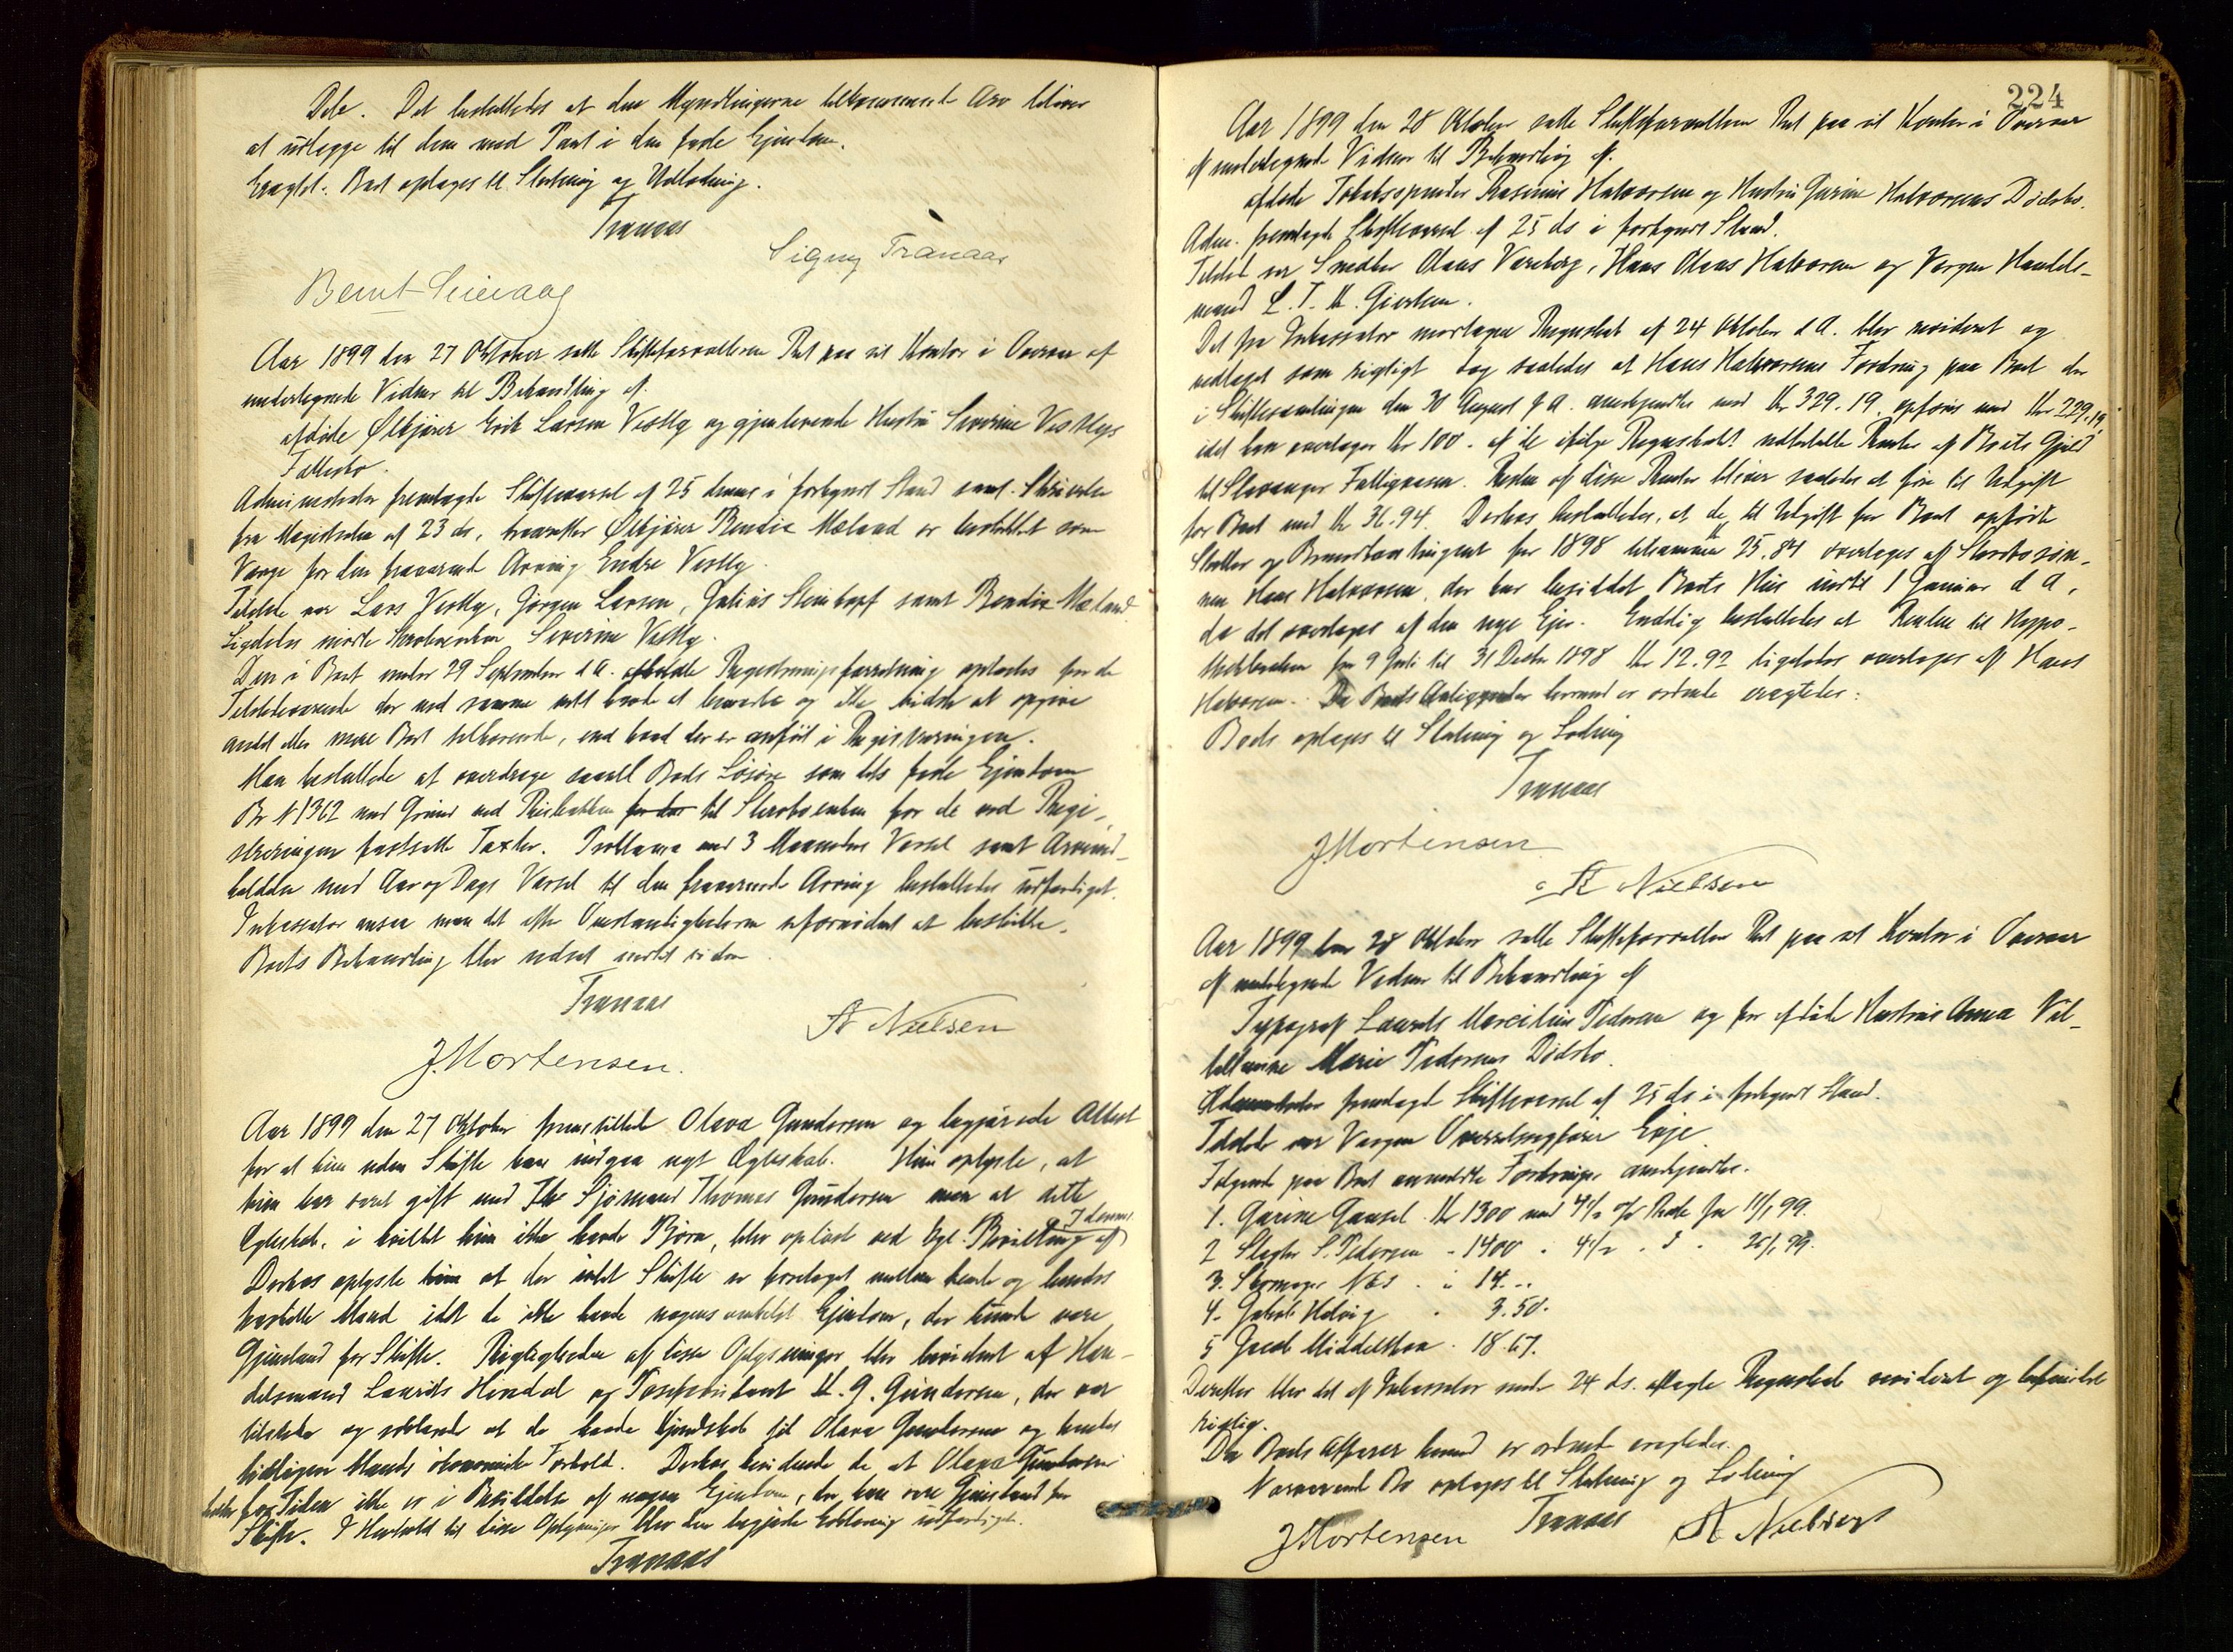 Dele. Det besluttedes at den Myndlingerne tilkommende Arv bliver
at udlægge til dem med Pant i den faste Ejendom.
Eragtet: Boet optages til Slutning og Udlodning.
Tranaas
Signy Tranaas
Bernt
Aar 1899 den 27 Oktober satte Skifteforvalteren Ret paa sit Kontor i Overvær af
undertegnede Vidner til Behandling af
afdøde Ølkjører Erik Larsen Vestby og gjenlevende Hustru Severine Vestbys
Fællesbo.
Administrator fremlagde Skiftevarsel af 25 dennes i forkyndt Stand samt Skrivelse
fra Magistraten af 23 ds, hvorefter Ølkjører Bendix Mæland er beskikket som
Værge for den fraværende Arving Endre Vestby.
Tilstede var Lars Vestby, Jörgen Larsen, Julius Steinkopf samt Bendix Mæland
Ligeledes mødte Stervboenken Severine Vestby.
Den i Boet under 29 September d A. afholdte Registreringsforretning oplæstes for de
Tilstedeværende der ved samme intet havde at bemærke og ikke vidste at opgive
andet eller mere Boet tilhørende, end hvad der er anført i Registreringen.
Man besluttede at overdrage saavel Boets Løsøre som dets faste Ejendom
Br N 1362 med Grund ved til Stervboenken for de ved Regi-
streringen fastsatte Taxter. Proklama med 3 Maaneders Varsel samt Arveind-
kaldelse med Aar og Dags Varsel til den fraværende Arving besluttedes udfærdiget.
Inkassator ansaa man det efter Omstændighederne ufornødent at beskikke.
Boets Behandling blev udsat indtil videre
Tranaas
St Nielsen
J. Mortensen.
Aar 1899 den 27 Oktober fremstillede Olava Gundersen og begjærede Attest
for at hun uden Skifte kan indgaa nyt Ægteskab. Hun oplyste, at
hun har været gift med Sjømand Thomas Gundersen men at dette
Ægteskab, i hvilket hun ikke havde Børn, blev opløst ved kgl. Bevilling af 7 dennes
Derhos oplyste hun at der intet Skifte er foretaget mellem hende og hendes
fraskilte Mand idet de ikke havde nogensomhelst Ejendom, der kunde være
Gjenstand for Skifte. Rigtigheden af disse Oplysninger blev bevidnet af Han-
delsmand Laurits Hindal og K. G. Gundersen, der var
tilstede og erklærede at de havde Kjendskab til Olava Gundersen og hendes
tidligere Mands økonomiske Forhold. Derhos bevidnede de at Olava Gundersen
heller for Tiden ikke er i Besiddelse af nogen Ejendom, der kan være Gjenstand for
Skifte. I Henhold til disse Oplysninger blev den begjærte Erklæring udfærdiget.
Tranaas
224
Aar 1899 den 28 Oktober satte Skifteforvalteren Ret paa sit Kontor i Overvær
af undertegnede Vidner til Behandling af
afdøde Tobaksspinder Rasmus Halvorsen og Hustru Gurine Halvorsens Dødsbo.
Adm. fremlagde Skiftevarsel af 25 ds i forkyndt Stand.
Tilstede var Snedker Olaus Vareberg, Hans Olaus Halvorsen og Værgen Handels-
mand L. T. K. Giertsen.
Det fra Inkassator modtagne Regnskab af 24 Oktober d A. blev revideret og
vedtaget som rigtigt dog saaledes at Hans Halvorsens Fordring paa Boet der
i Skiftesamlingen den 30 August f A. anerkjendtes med Kr 329.19 opføres med Kr 229.19,
idet han overtager Kr 100. af de ifølge Regnskabet udbetalte Renter af Boets Gjæld
til Stavanger Fattigvæsen. Resten af disse Renter bliver saaledes at føre til Udgift
for Boet med Kr 36.94. Derhos besluttedes, at de til Udgift for Boet opførte
Skatter og Brandkontingent for 1898 tilsammen Kr 25.84 overtages af Stervbosøn-
nen Hans Halvorsen, der har besiddet Boets Hus indtil 1 Januar d A,
da det overtoges af den nye Ejer. Endelig besluttedes at Renten til Hypo-
thekbanken fra 9 Juli til 31 Decbr 1898 Kr 12.92 ligeledes overtages af Hans
Halvorsen. Da Boets Anliggender hermed er ordnede eragtedes:
Boet optages til Slutning og Lodning
Tranaas
J. Mortensen
St Nielsen
Aar 1899 den 28 Oktober satte Skifteforvalteren Ret paa sit Kontor i Overvær
af undertegnede Vidner til Behandling af
Typograf Laurits Marcelius Pedersen og før afdøde Hustru Anna Vil-
helmine Marie Pedersens Dødsbo.
Administrator fremlagde Skiftevarsel af 25 ds i forkyndt Stand.
Tilstede var Værgen Overretssagfører Eeje.
Følgende paa Boet anmeldte Fordringer anerkjendtes.
1. Gurine Gausel Kr 1300 med 4½ % Rente fra 11/1 99.
2 Slagter S. Pedersen - 1400 " 4½ " " 26/1 99.
3. Skomager Næs " " 14 ..
4. Jakob Helvig " 3.50.
5 Jacob Middelthon . 18.67.
Derefter blev det af Inkassator under 24 ds. aflagte Regnskab revideret og befundet
rigtig.
Da Boets Affærer hermed er ordnet eragtedes.
Nærværende Bo optages til Slutning og Lodning
Tranaas
J Mortensen
St Nielsen